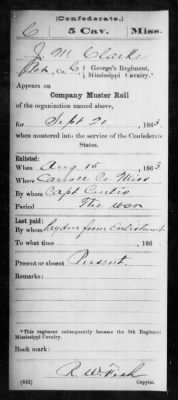 (Confederate.)
C 5 Cav. Miss.
J. M. Clark
Co. C, George's Regiment,
Mississippi Cavalry.*
Appears on
Company Muster Roll
of the organization named above,
for Sept 21, 1863
when mustered into the service of the Confederate
States.
Enlisted:
When Aug 15, 1863
Where Carroll Co Miss
By whom Capt Curtis
Period The war
Last paid:
By whom from Enlistment
To what time , 186
Present or absent Present
Remarks:
*This regiment subsequently became the 5th Regiment
Mississippi Cavalry.
Book mark:
R. W. Fish
(642) Copyist.